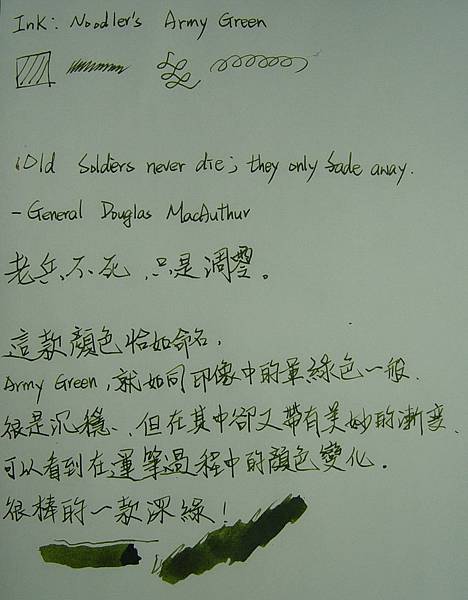 Ink: Noodler's Army Green
Old Soldiers never die; they only fade away.
- General Douglas MacAuthur
老兵不死,只是凋零。
這款顏色恰如命名,
Army Green,就如同印像中的軍綠色一般,
很是沉穩、但在其中卻又帶有美妙的漸變、
可以看到在運筆過程中的顏色變化。
很棒的一款深綠!